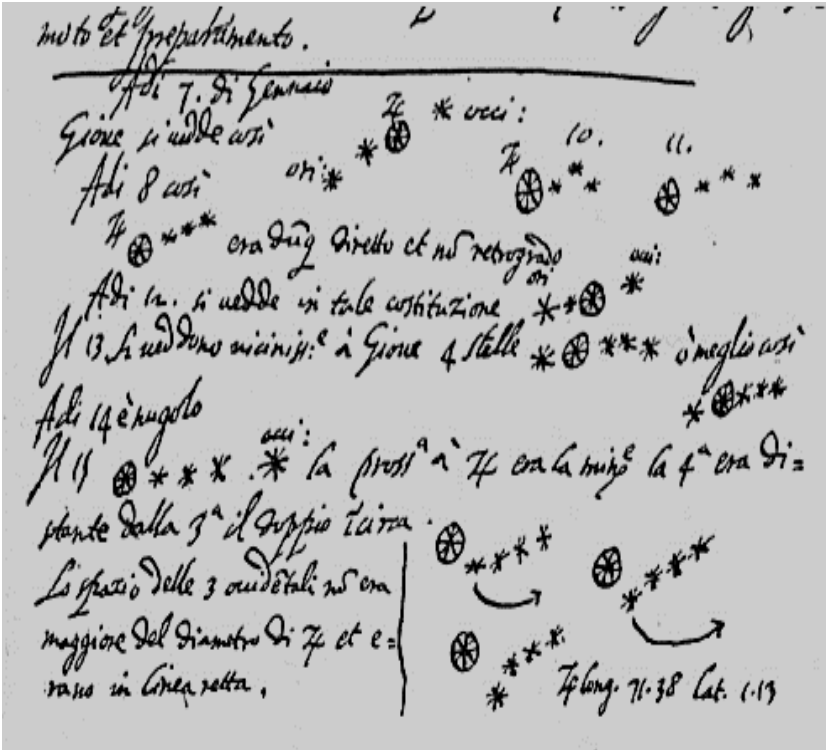 moto et sprepartimento.
Adi 7. di Gennaio
Gione si uedde così
♃ * occi:
ori: * *
Adi 8 così
♃ * * *
era dũq diretto et nõ retrogrado
♃ 10. * * *
11. * * *
Adi 12. si uedde in tale costituzione
ori * * occi: *
Il 13 si ueddono viciniss:ᵉ à Gione 4 stelle * * * * ò meglio così
* * * *
Adi 14 è nugolo
Il 15 * * * occi: * la prossᵃ à ♃ era la minʳᵉ la 4ᵃ era di=
stante dalla 3ᵃ il doppio ĩcirca.
Lo spazio delle 3 ouidẽtali nõ era
maggiore del diametro di ♃ et e=
rano in linea retta.
♃ long. 71.38 Lat. 1.13